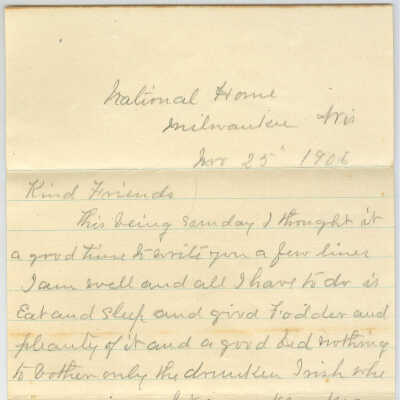 National Home
Milwaukee Wis
Nov 25" 1906
Kind Friends
This being sunday I thought it
a good time to write you a few lines
I am well and all I have to do is
Eat and sleep and good Fodder and
pleanty of it and a good bed nothing
to bother only the drunken Irish who